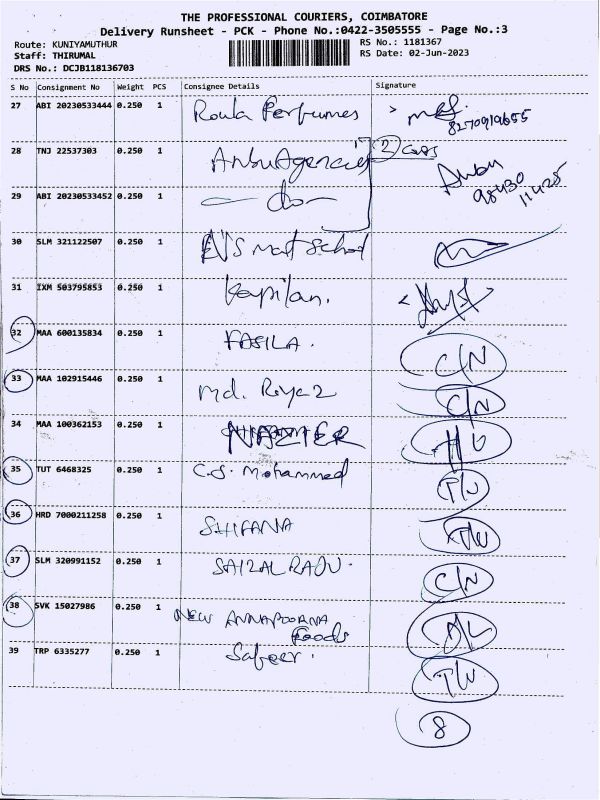 THE PROFESSIONAL COURIERS, COIMBATORE
Delivery Runsheet - PCK - Phone No.:0422-3505555 - Page No.:3
Route: KUNIYAMUTHUR
RS No.: 1181367
Staff: THIRUMAL
RS Date: 02-Jun-2023
DRS No.: DCJB118136703
S No Consignment No Weight PCS Consignee Details Signature
27 ABI 20230533444 0.250 1 Roula Perfumes
8270919655
28 TNJ 22537303 0.250 1 Anbu Agencies 2
Anbu
98430
11425
29 ABI 20230533452 0.250 1 — do —
30 SLM 321122507 0.250 1 EVS mat School
31 IXM 503795853 0.250 1 Kapilan.
32 MAA 600135834 0.250 1 FASILA. C/N
33 MAA 102915446 0.250 1 Md. Riyaz C/N
34 MAA 100362153 0.250 1 NAZIER
35 TUT 6468325 0.250 1 C.S. Mohammed
36 HRD 7000211258 0.250 1 SHIFANA
37 SLM 320991152 0.250 1 SAIZAL RAJU. C/N
38 SVK 15027986 0.250 1 NEW ANNAPOORNA Foods A/L
39 TRP 6335277 0.250 1 Safeer.
8